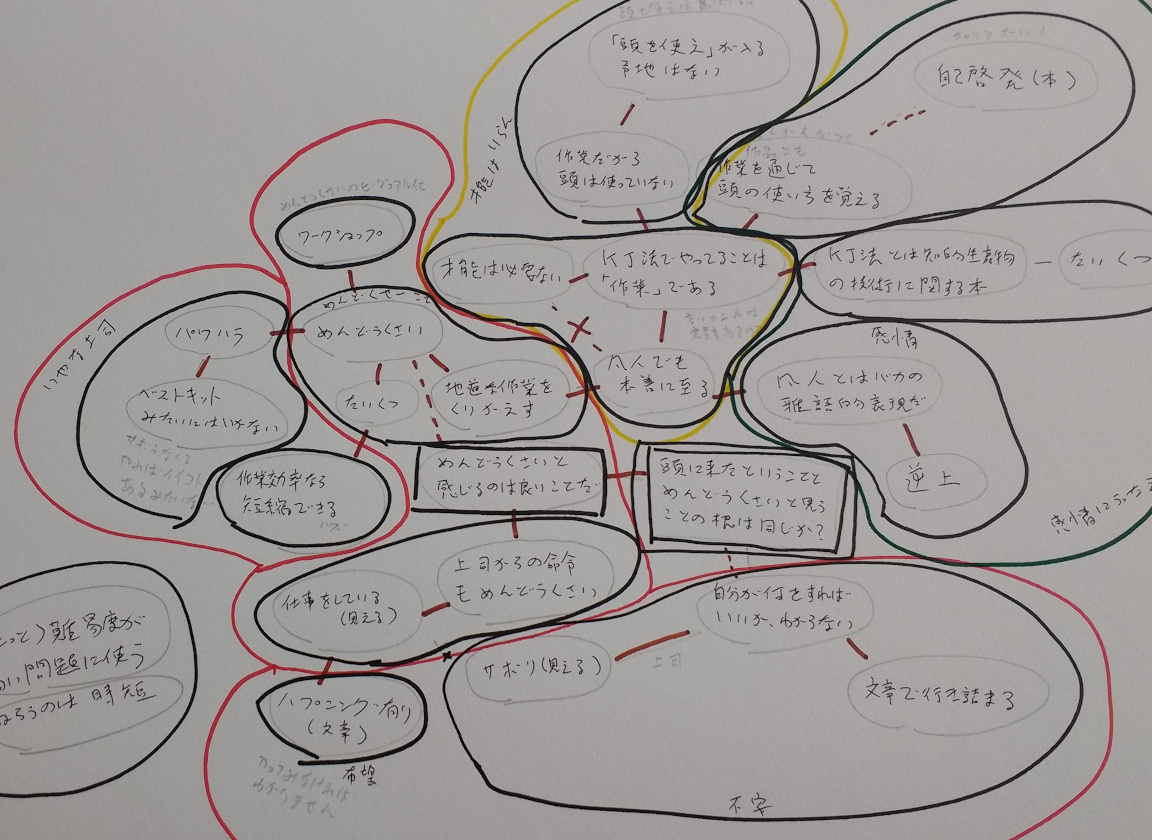 「頭を使え」が入る
予地はない
自己啓発(本)
才能はいらん
作業だから
頭は使っていない
作業を通じて
頭の使い方を覚える
めんどうくさいのビジュアル化
ワークショップ
才能は必要ない
KJ法でやってることは
「作業」である
KJ法とは知的生産物
の技術に関する本
たいくつ
めんどくせーって
めんどうくさい
いやな上司
パワハラ
ベストキット
みたいにはいかない
たいくつ
地道な作業を
くりかえす
凡人でも
本善に至る
感情
凡人とはバカの
雅語的表現だ
逆上
作業効率なる
短縮できる
めんどうくさいと
感じるのは良いことだ
頭に来たということと
めんどうくさいと思う
ことの根は同じか?
上司からの命令
もめんどうくさい
仕事をしている
(見える)
自分が何をすれば
いいか、わからない
サボリ(見える)
上司
文章で行き詰まる
難易度が
問題に使う
のは時短
ハプニング有り
(文章)
希望
やってみなければ
わかりません
不安